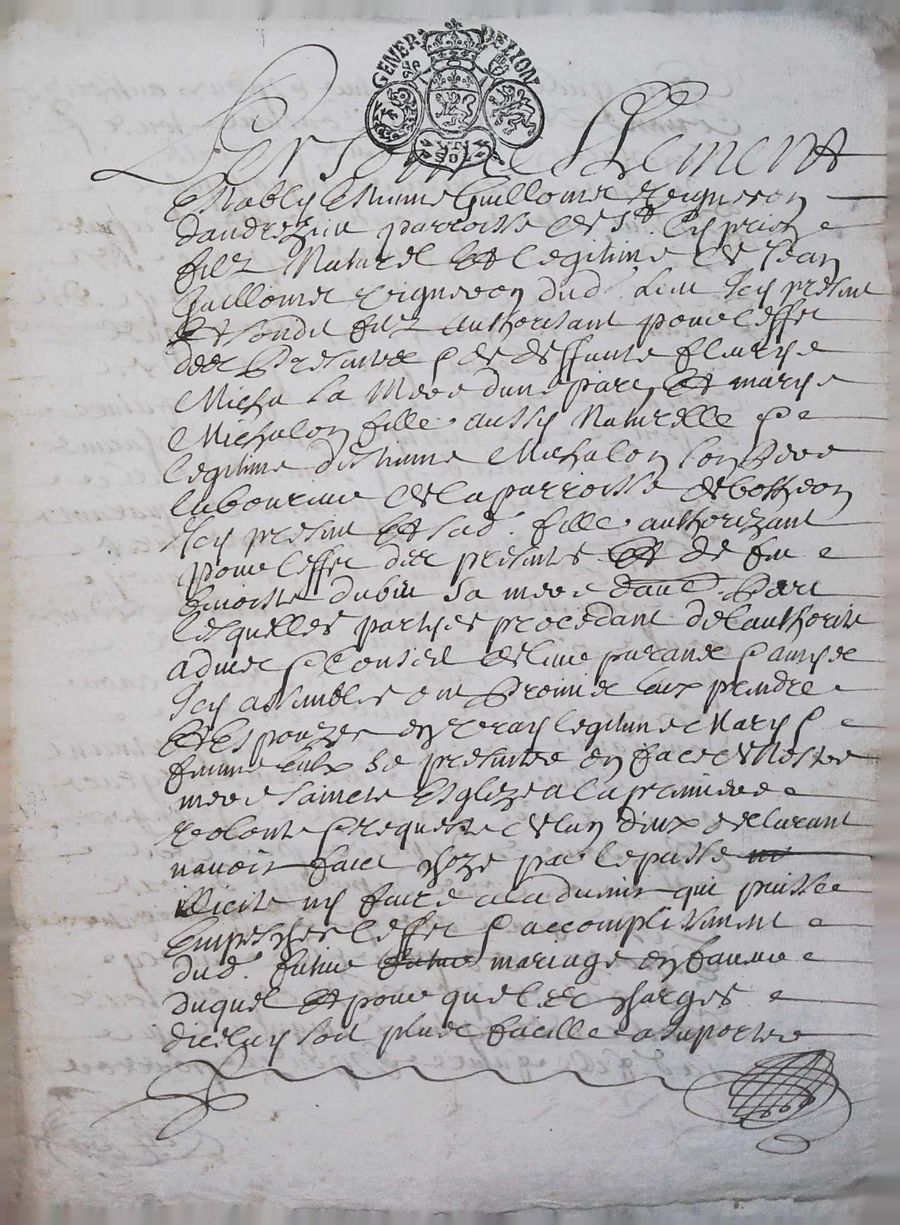 GENER DE LION
Personnellement
Estably Estienne Guilloumet vigneron
dandrezieu parroisse de St Cyprien
filz Naturel et legitime de Jean
Guilloumet vigneron dud. lieu Icy present
et sondit filz authorisant pour leffet
des presantes & de deffunte fleurye
Micha sa Mere dune part, et marye
Michalon fille aussy Naturelle &
legitime destienne Michalon son pere
laboureur de la parroisse de bottheon
Icy present et sad. fille authorizant
pour leffet des presentes et de fue
benoiste dubin sa mere dautre part
lesquelles partyes procedant de lauthorite
advis & Conseil de leurs parans & amys
Icy assembles ont promis eux prendre
et Espouzer en vray legitime Mary &
femme eulx se presenter en face de Nostre
mere saincte Esglize a la premiere
volonte & requeste de lun deux declarant
navoir faict choze par le passe
illicite ny faire a ladvenir qui puisse
Empescher leffet & accomplissement
dud. futur mariage en faveur
duquel et pour que les charges
dicelluy soit plus facille a suporter